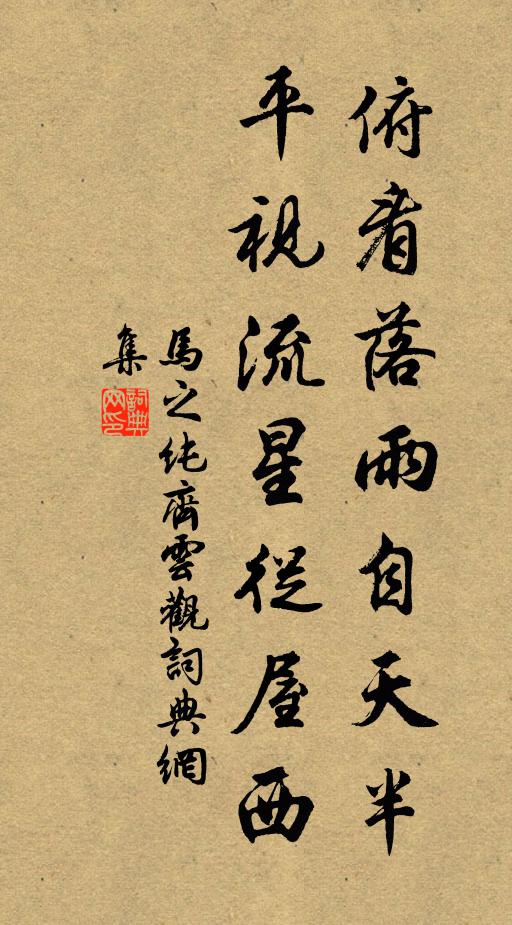 俯看落雨自天半
平視流星從屋西
馬之純齊雲觀詞典網
集
詞典
网印